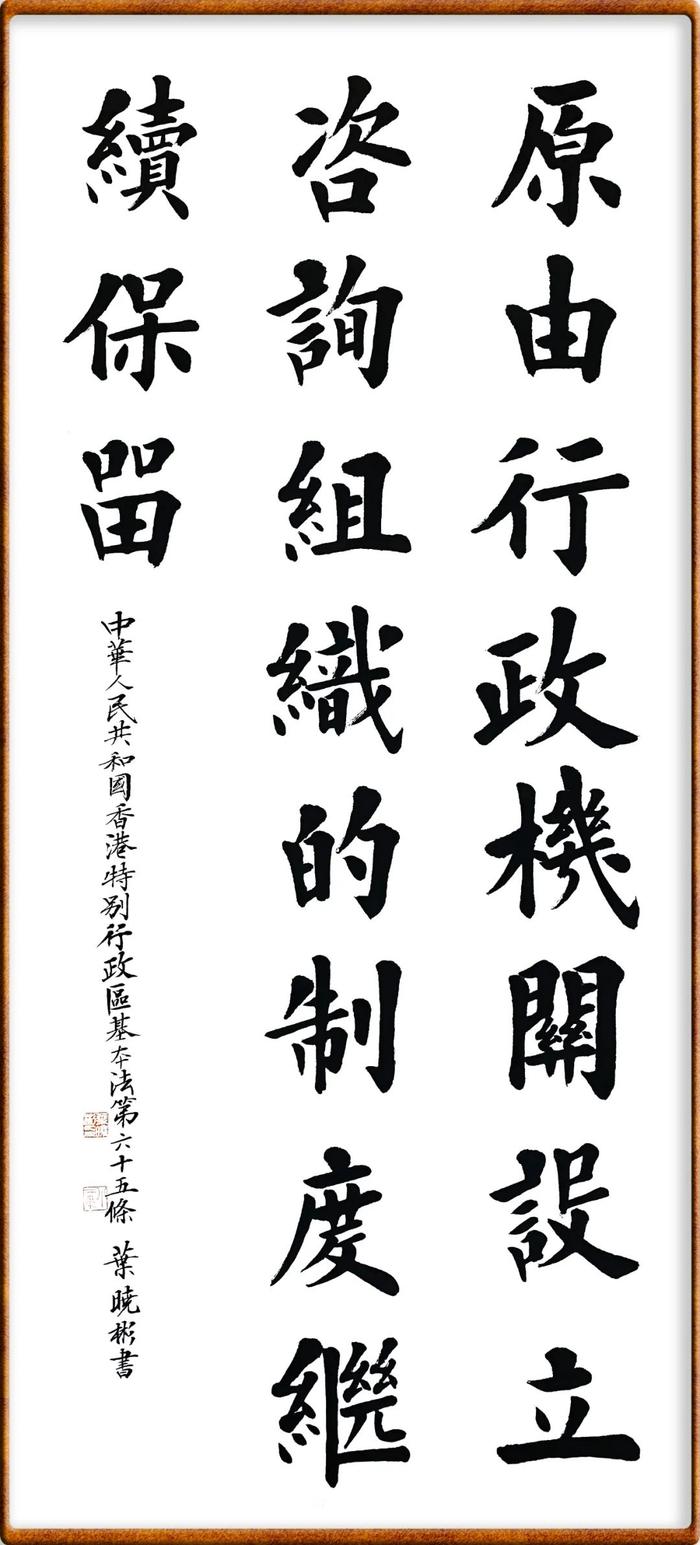 原由行政機關設立
咨詢組織的制度繼
續保留
中華人民共和國香港特別行政區基本法第六十五條 葉曉彬書